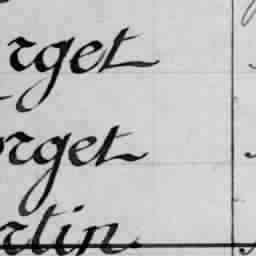 rget
orget
rtin